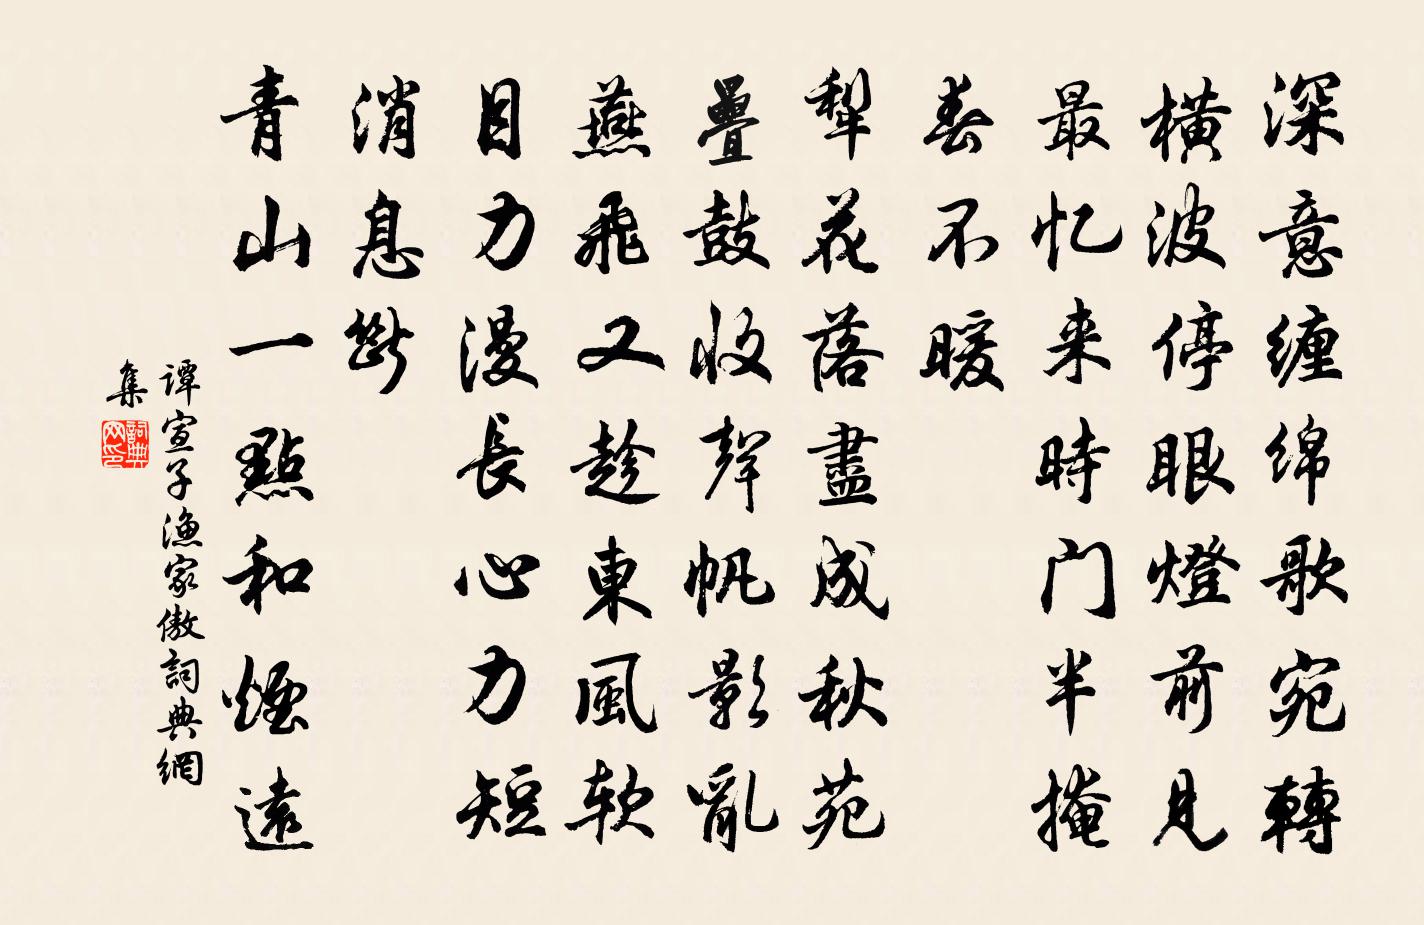 深意缠绵歌宛轉
横波停眼燈前見
最忆来時门半掩
春不暖
犁花落盡成秋苑
疊鼓收聲帆影亂
燕飛又趁東風软
目力漫長心力短
消息斷
青山一點和煙遠
谭宣子漁家傲詞典網
集
詞典
网印